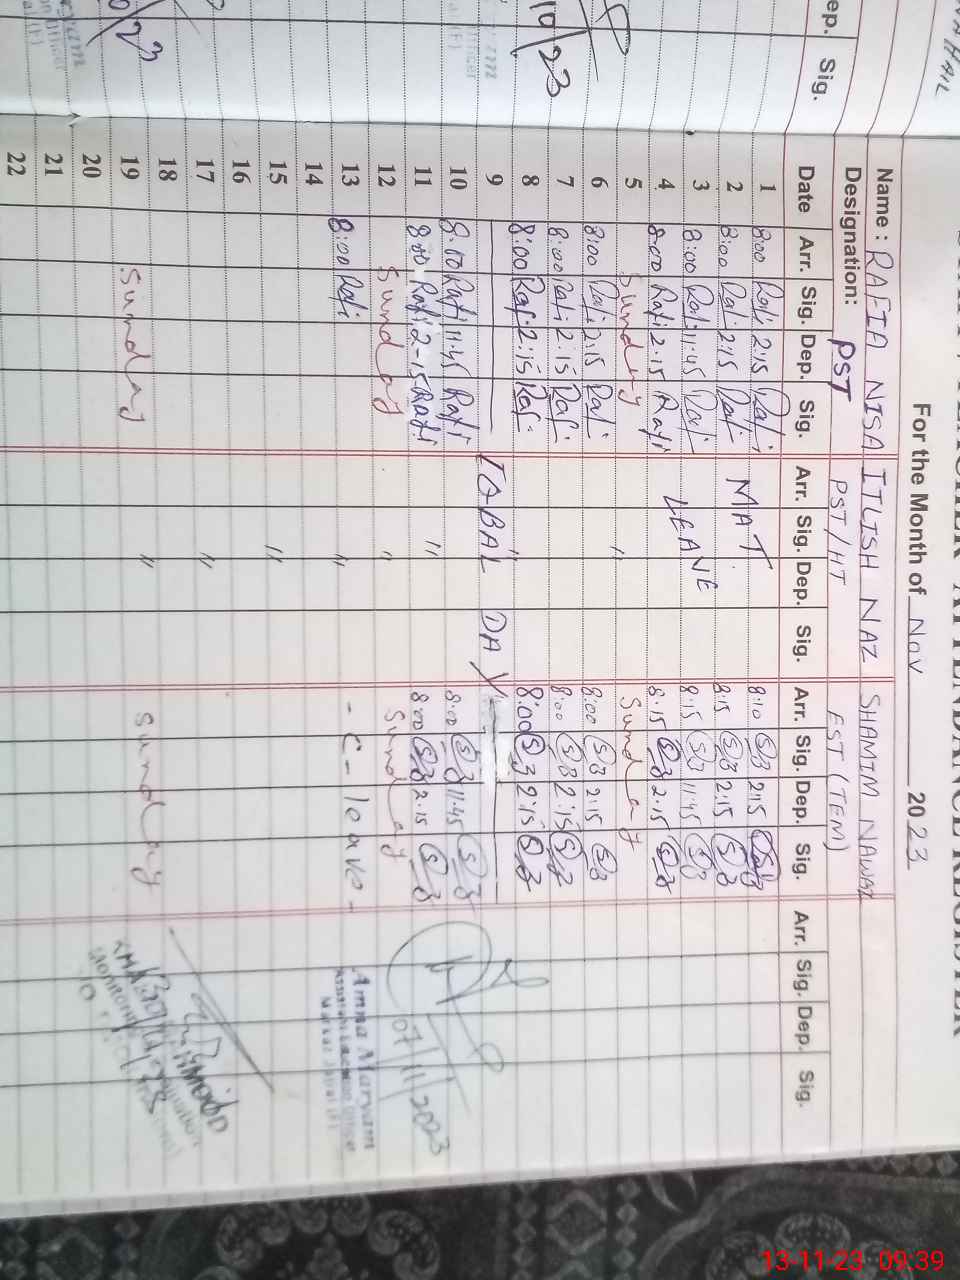 TEACHER ATTENDANCE REGISTER
For the Month of Nov 2023
Name : RAFIA NISA ITLISH NAZ SHAMIM NAWAZ
Designation: PST PST/HT EST (TEM)
Date Arr. Sig. Dep. Sig. Arr. Sig. Dep. Sig. Arr. Sig. Dep. Sig. Arr. Sig. Dep. Sig.
1 8:00 Rafi 2:15 Rafi 8:10 2:15
2 8:00 Rafi 2:15 Rafi MAT. 8:15 2:15
3 8:00 Rafi 11:45 Rafi 8:15 11:45
4 8:00 Rafi 2:15 Rafi LEAVE 8:15 2:15
5 Sunday " Sunday
6 8:00 Rafi 2:15 Rafi 8:00 2:15
7 8:00 Rafi 2:15 Rafi 8:00 2:15
8 8:00 Raf 2:15 Raf 8:00 2:15
9 IQBAL DAY
10 8:00 Rafi 11:45 Rafi 8:00 11:45
11 8:00 Rafi 2-15 Rafi " 8:00 2:15
12 Sunday " Sunday
13 8:00 Rafi " - C - leave -
14
15 "
16
17 "
18
19 Sunday " Sunday
20
21
22
07/11/2023
Amna Maryam
Assistant Education Officer
ep. Sig.
10/23
13-11-23 09:39